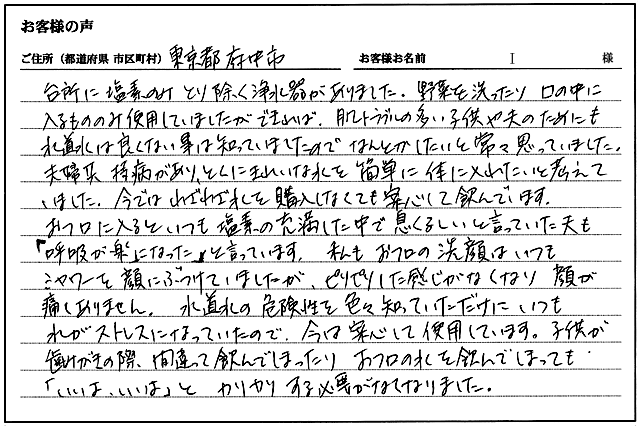 お客様の声
ご住所（都道府県 市区町村） 東京都府中市 お客様お名前 I 様
台所に塩素のみとり除く浄水器がありました。野菜を洗ったり口の中に
入るもののみ使用していましたができれば、肌トラブルの多い子供や夫のためにも
水道水は良くない事は知っていましたのでなんとかしたいと常々思っていました。
夫婦共 持病があり、とくにきれいな水を簡単に体に入れたいと考えて
いました。今ではわざわざ水を購入しなくても安心して飲んでいます。
おフロに入るといつも塩素の充満した中で息くるしいと言っていた夫も
「呼吸が楽になった」と言っています。私もおフロの洗顔はいつも
シャワーを顔にぶつけていましたが、ピリピリした感じがなくなり 顔が
痛くありません。水道水の危険性を色々知っていただけにいつも
水がストレスになっていたので、今は安心して使用しています。子供が
歯みがきの際、間違って飲んでしまったり おフロの水を飲んでしまっても
「いいよ、いいよ」と カリカリする必要がなくなりました。